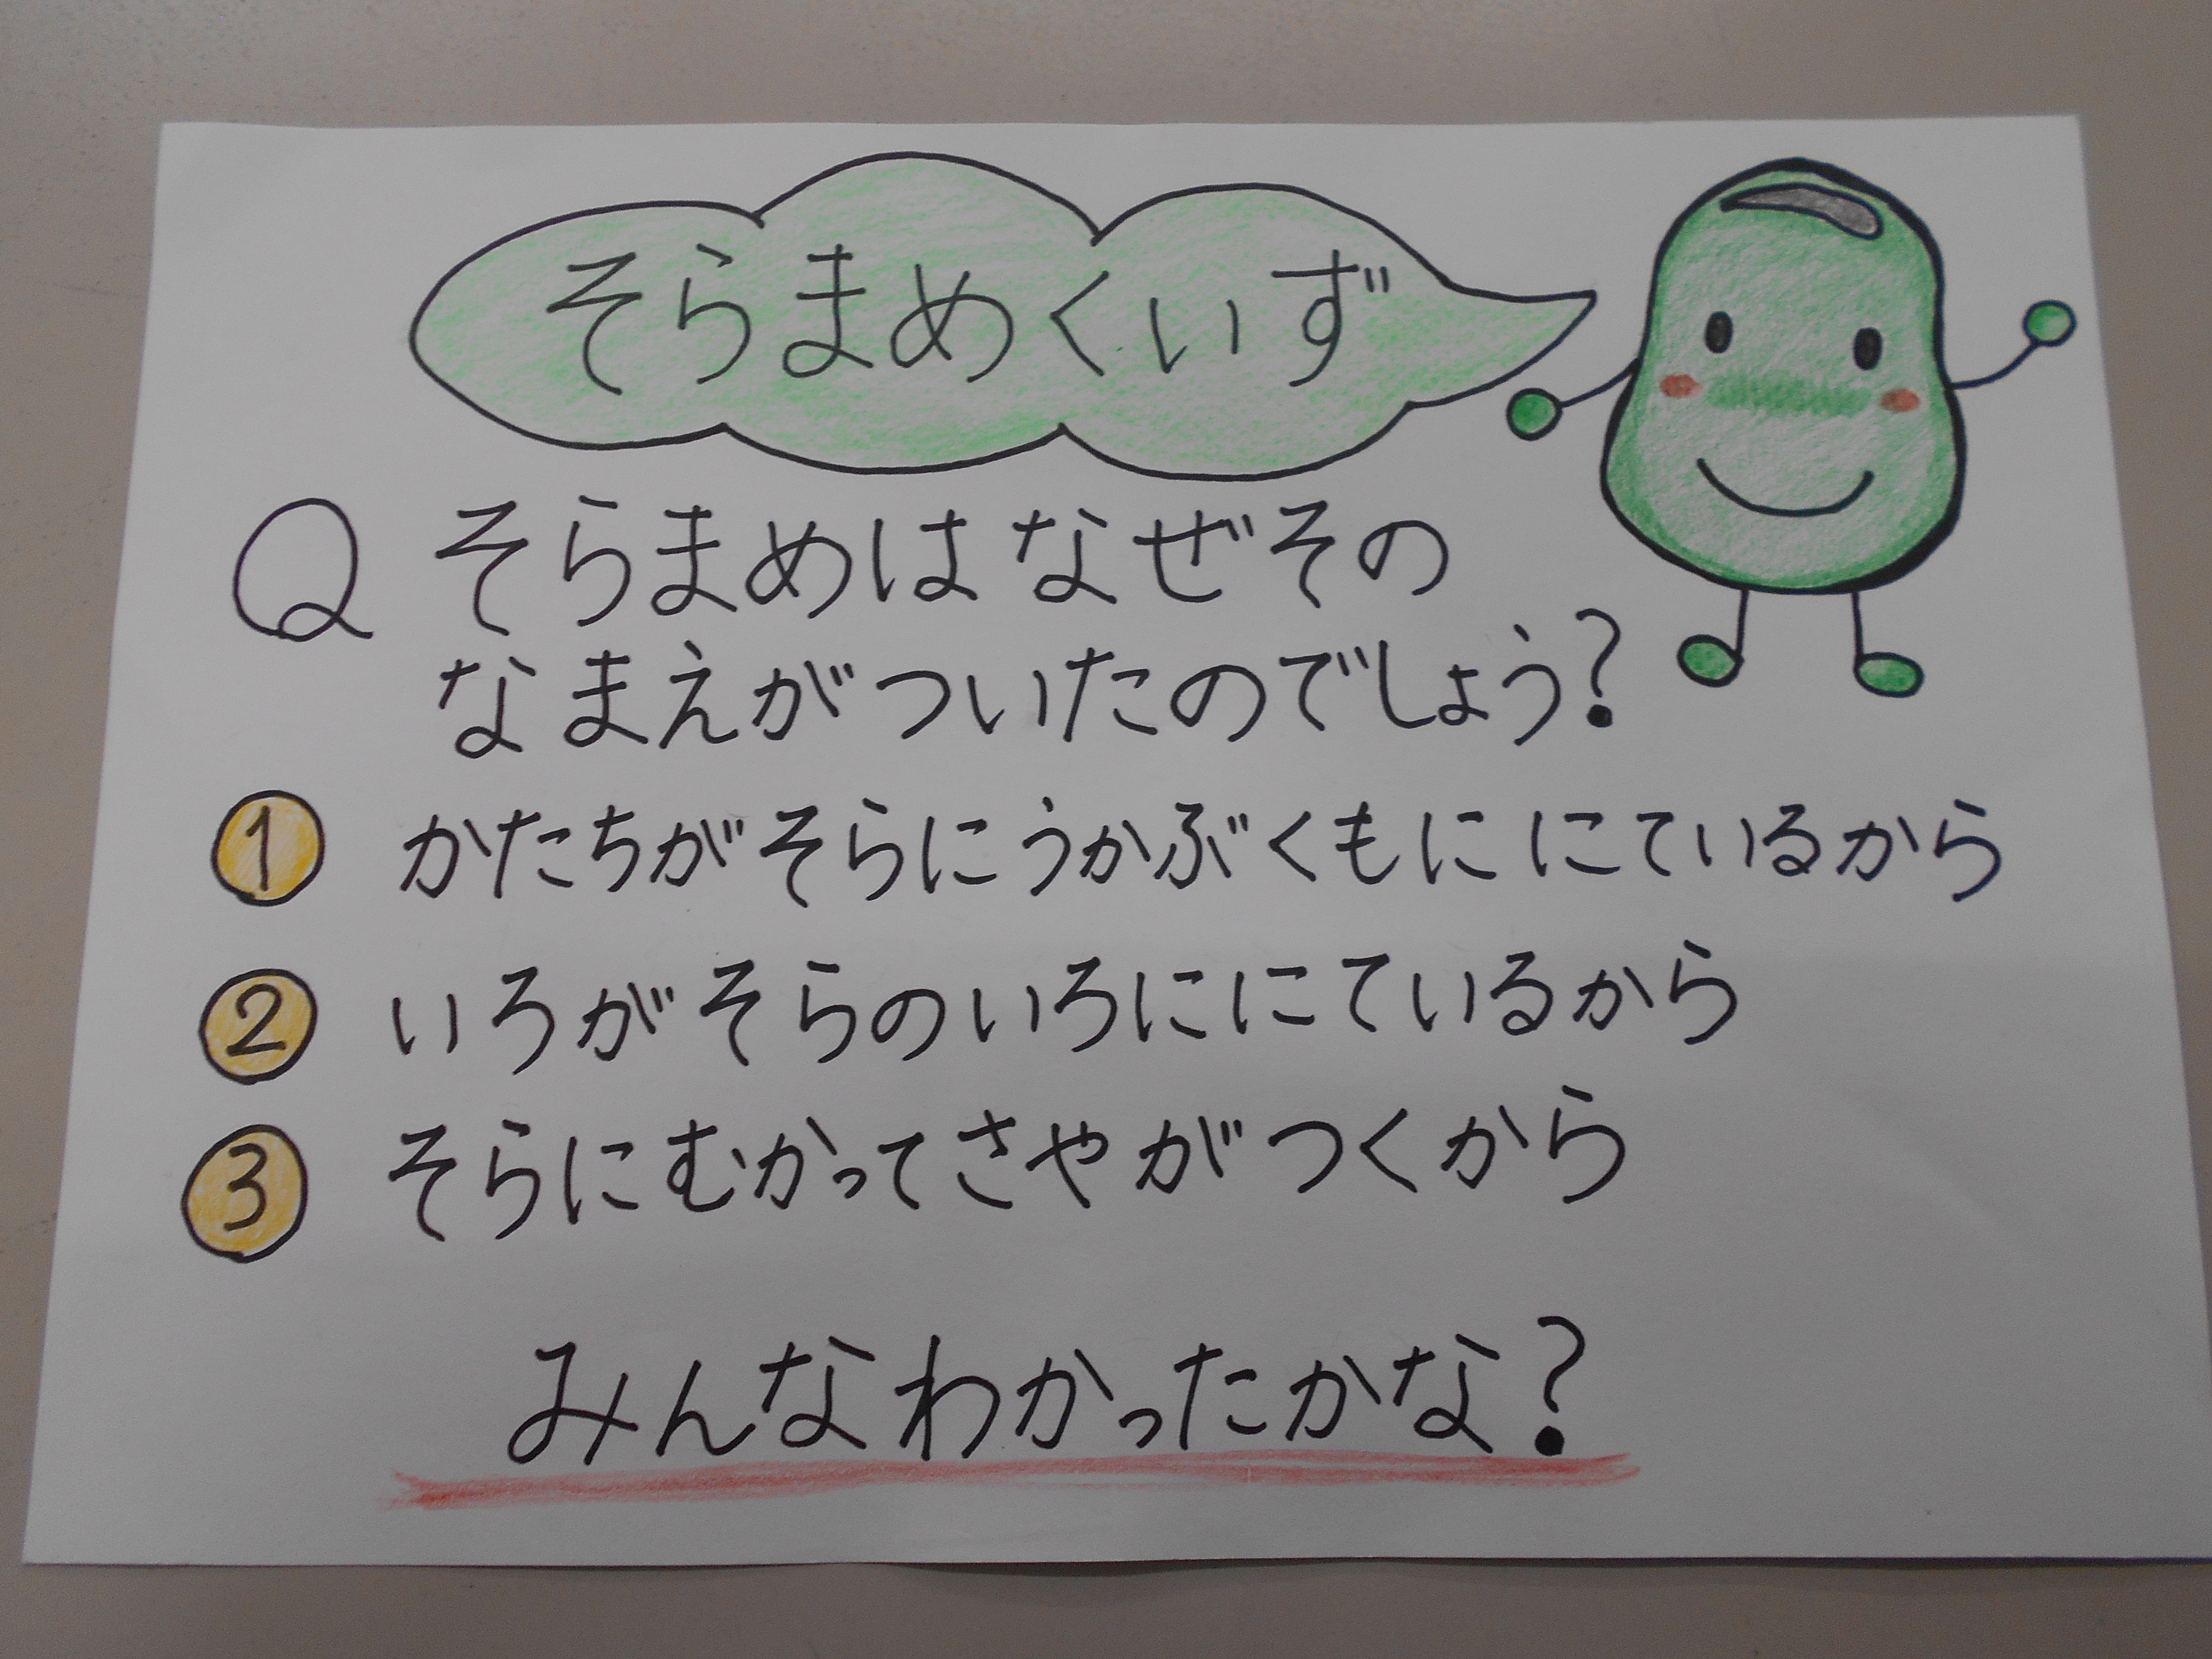 そらまめくいず
Q そらまめはなぜその
なまえがついたのでしょう?
① かたちがそらにうかぶくもににているから
② いろがそらのいろににているから
③ そらにむかってさやがつくから
みんなわかったかな?